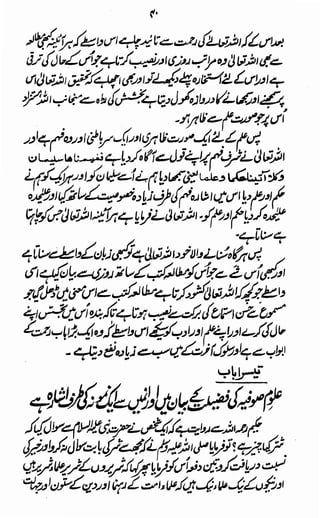 ۴۰
بعد اس کے کہ اللہ تعالیٰ کی رحمت سے تائید چاہے اس واسطے کہ ہر آئینہ کبھی مطالعہ
سے بھی اللہ تعالیٰ وہ مراتب روزی اور نصیب کرتا ہے جو اُس کے حال کی ترقی
ہے اور اس کے لئے استخارہ پہلے دیکھے تو اور بھی اچھا ہے کہ تحقیق اللہ تعالیٰ اس
پر سمجھنے اور سمجھانے کا دروازہ کھول دیتا ہے بخشش کی راہ سے منجانب اللہ مستزاد
اُس پر جو صورت علم سے ظاہر ہو۔
پس علم کے لئے ایک صورت ظاہری اور ایک سر باطنی اور وہ فہم ہے اور
اللہ تعالیٰ نے شرف فہم پر اپنے قول سے آگاہ کر دیا ہے ففہمناھا سلیمان
وکلا اٰتینا حکما وعلما یعنی سمجھا دیا ہم نے اُسے سلیمان کو اور ہر ایک کو ہم نے
حکم اور علم دیا اس میں اشارہ فہم کی طرف زیادہ خصوصیت کے ساتھ کیا اور علیحدہ
علیحدہ کر دیا حکم اور علم کو۔ اللہ تعالیٰ نے فرمایا ہے ہر آئینہ اللہ تعالیٰ جس کو چاہتا
ہے سناتا ہے۔
پس ہرگاہ سُنانے والا خود اللہ تعالیٰ ہے تو کبھی زبان کے واسطے سے سناتا ہے
اور کبھی اُس شے سے جو اُس کو مطالعہ کتب کے ساتھ روزی سے بیان کیا ہے اسی
واسطے جو کچھ کہ اللہ تعالیٰ کشود کرتا ہے مطالعہ کتب سے اس معنی میں ڈھل گیا جو
مسموع سے حسن استماع کی برکت سے نصیب ہوتا ہے تاکہ بندہ اس میں تجسس اپنے
حال کی کرے اور اپنے علم اور ادب کو سیکھے اس واسطے کہ وہ ایک بڑا باب رحمت کے
ابواب سے ہے اور سلوک آخرت کے میں سب سے زیادہ نفع دیتا ہے۔
تیسرا باب
علوم صوفیہ کی فضیلت کے بیان میں اور اُن میں سے ایک نمونہ کی طرف اشارہ ہے
حکیم رحمہ اللہ سے روایت ہے کہ ایک شخص نے حضرت نبی علیہ السلام سے سوال کیا کہ
شر کیا چیز ہے؟ تو فرمایا صلی اللہ علیہ وسلم نے کہ مجھ سے شر کی بابت سوال نہ کرو اور خیر کی
نسبت دریافت کرو تین دفعہ اُس کو فرمایا پھر کہا کہ شریروں کے شریر علماء شریر ہیں
اور نیکوں کے نیک علماء نیک ہیں کہ علماء امت کے رہنما اور دین کے ستون اور جہات